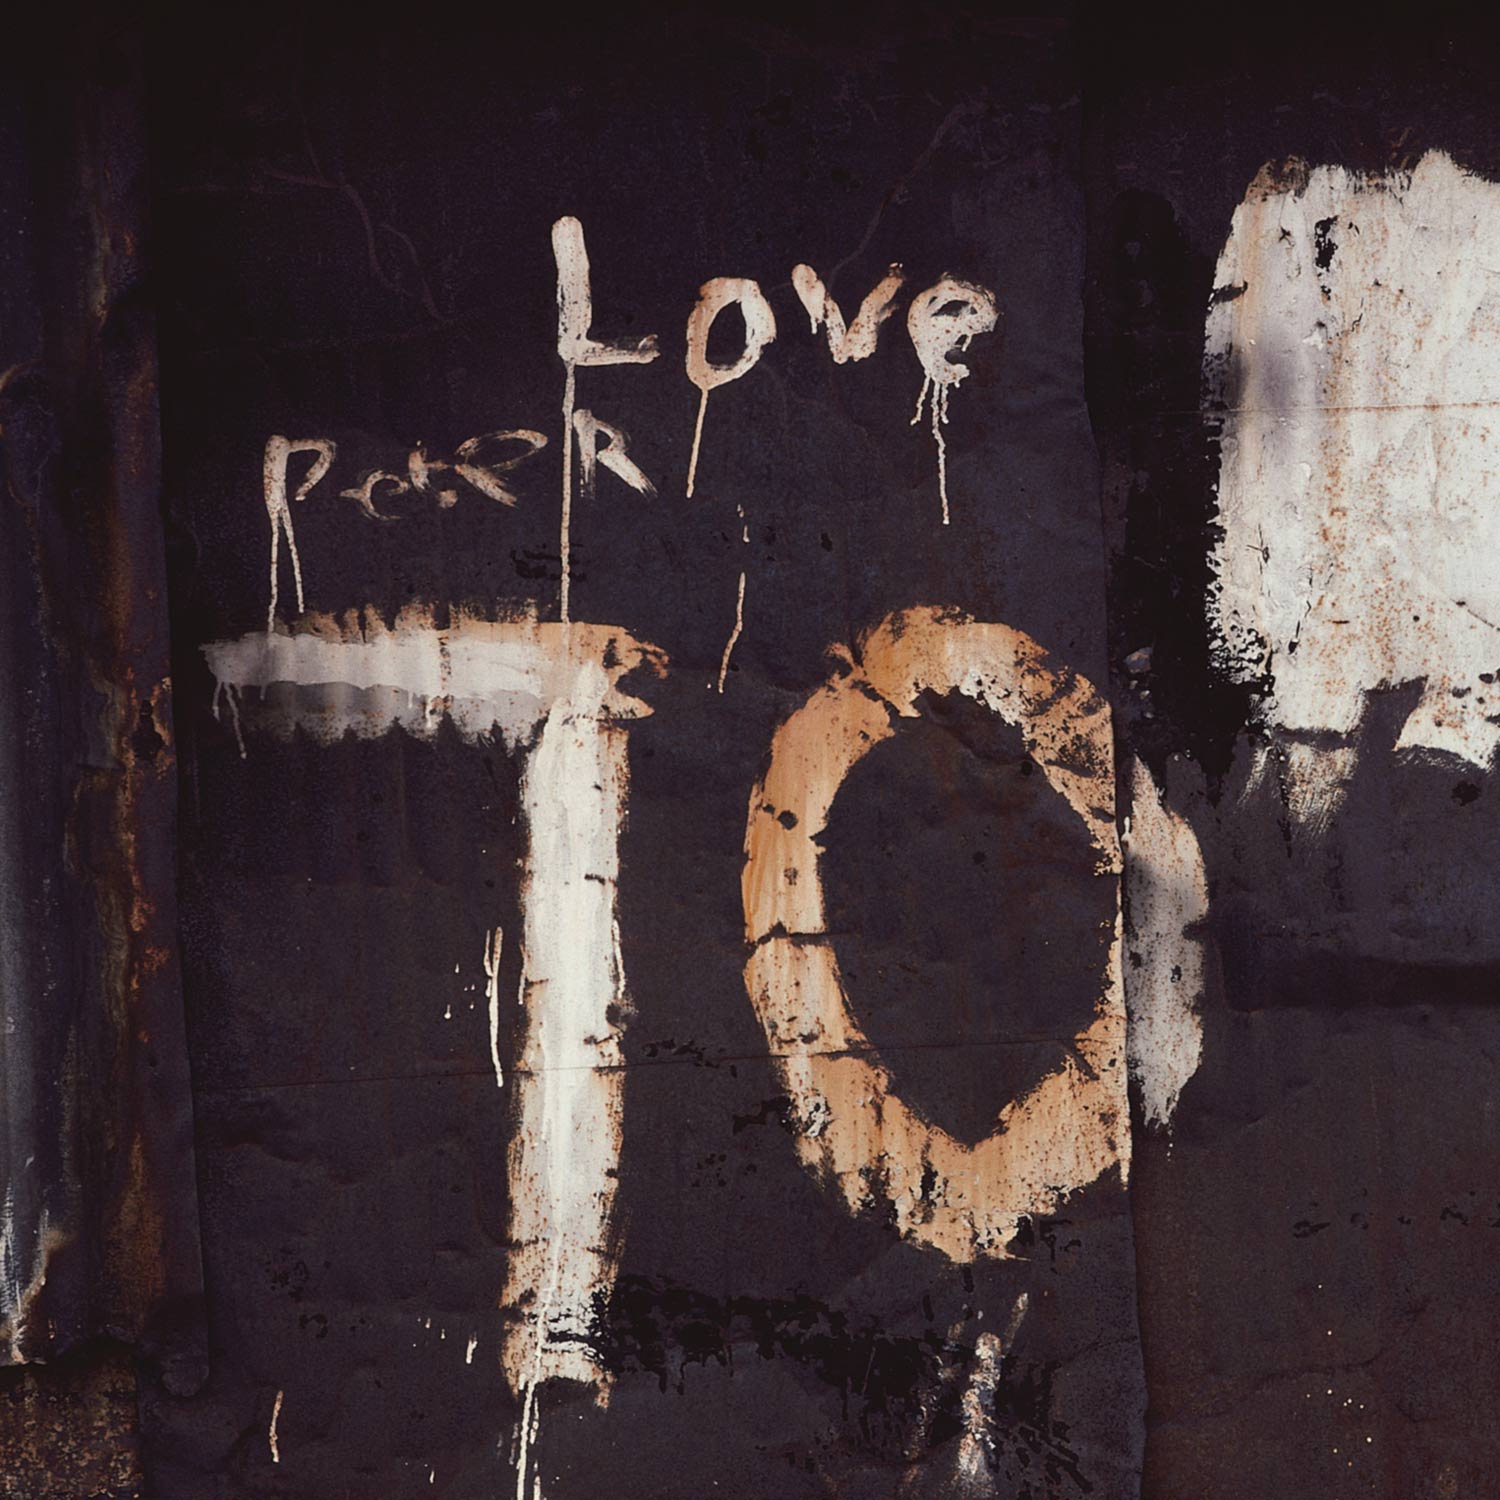 Love
PeteR
TO